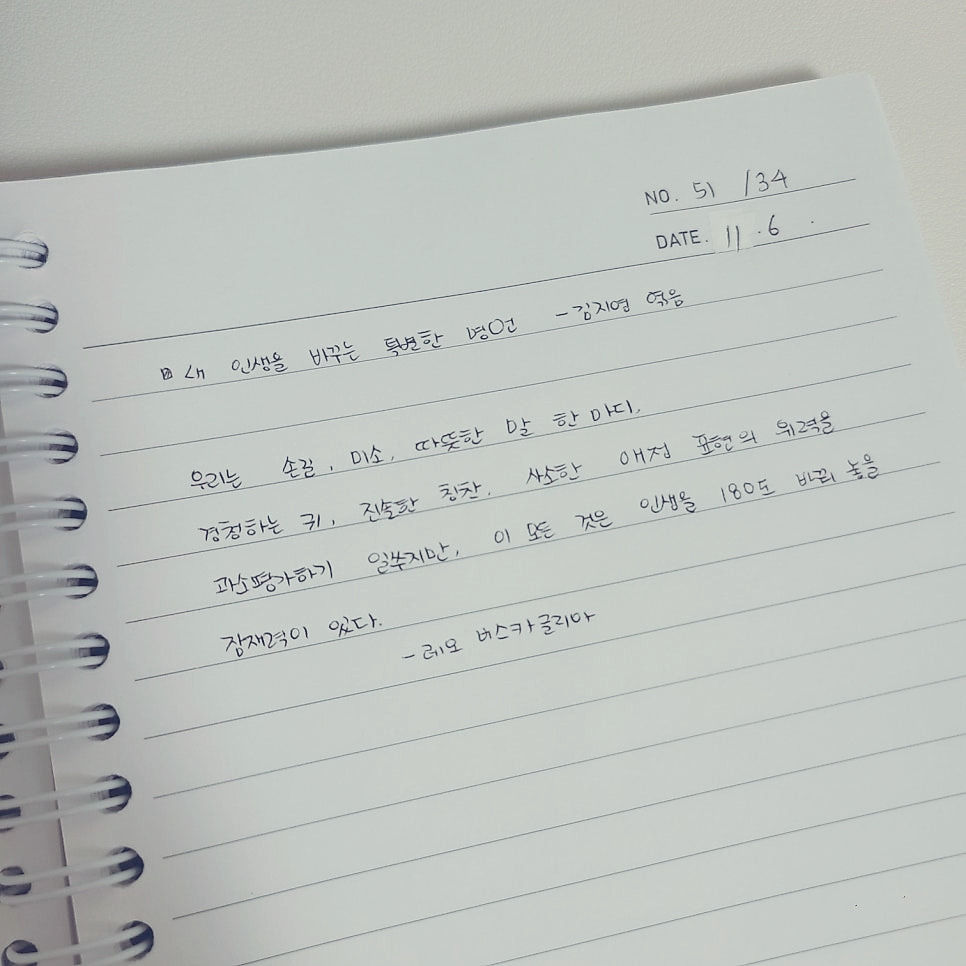 NO. 51 /34
DATE. 11 . 6 .
내 인생을 바꾸는 특별한 명언 - 김지영 엮음
우리는 손길, 미소, 따뜻한 말 한 마디,
경청하는 귀, 진솔한 칭찬, 사소한 애정 표현의 위력을
과소평가하기 일쑤지만, 이 모든 것은 인생을 180도 바꿔 놓을
잠재력이 있다.
- 레오 버스카글리아